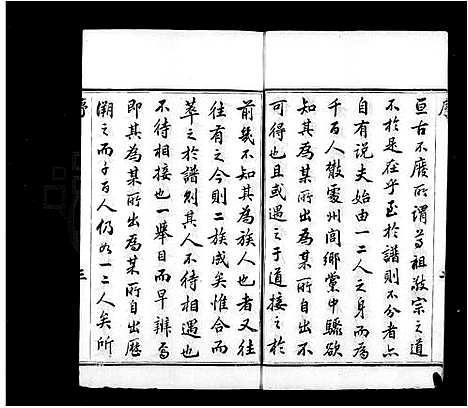 序
亘古不廢所謂尊祖敬宗之道
不於是在乎至於譜則不分者亦
自有説夫始由一二人之身而為
千百人散處州閭鄉黨中驟欲
知其為某所出為某所自出不
可得也且或遇之于道接之於
前幾不知其為族人也者又往
往有之今則二族成矣惟合而
萃之於譜則其人不待相遇也
不待相接也一舉目而早辨焉
即其為某所出為某所自出歷
溯之而千百人仍如一二人矣所
序
三